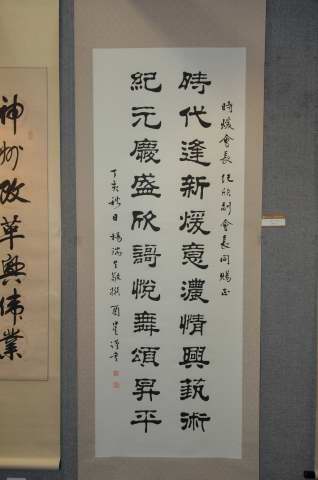 時煖會長 紀欣副會長同賜正
時代逢新煖意濃情興藝術
紀元慶盛欣謌悅舞頌昇平
丁亥秋日 楊 敬撰
神州改革興偉業